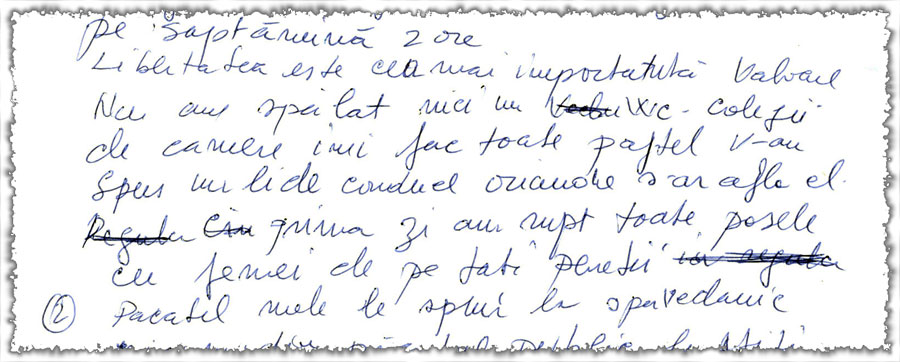 pe săptămînă 2 ore
Libertatea este cea mai importantută Valoare
Nu am spălat nici un WC - colegii
de camere imi fac toate paftel V-am
Spus un lide conduce oriunde s-ar afla el.
prima zi am rupt toate posele
cu femei de pe toti peretii
(2) Pacatel mele le spun la spovedanie